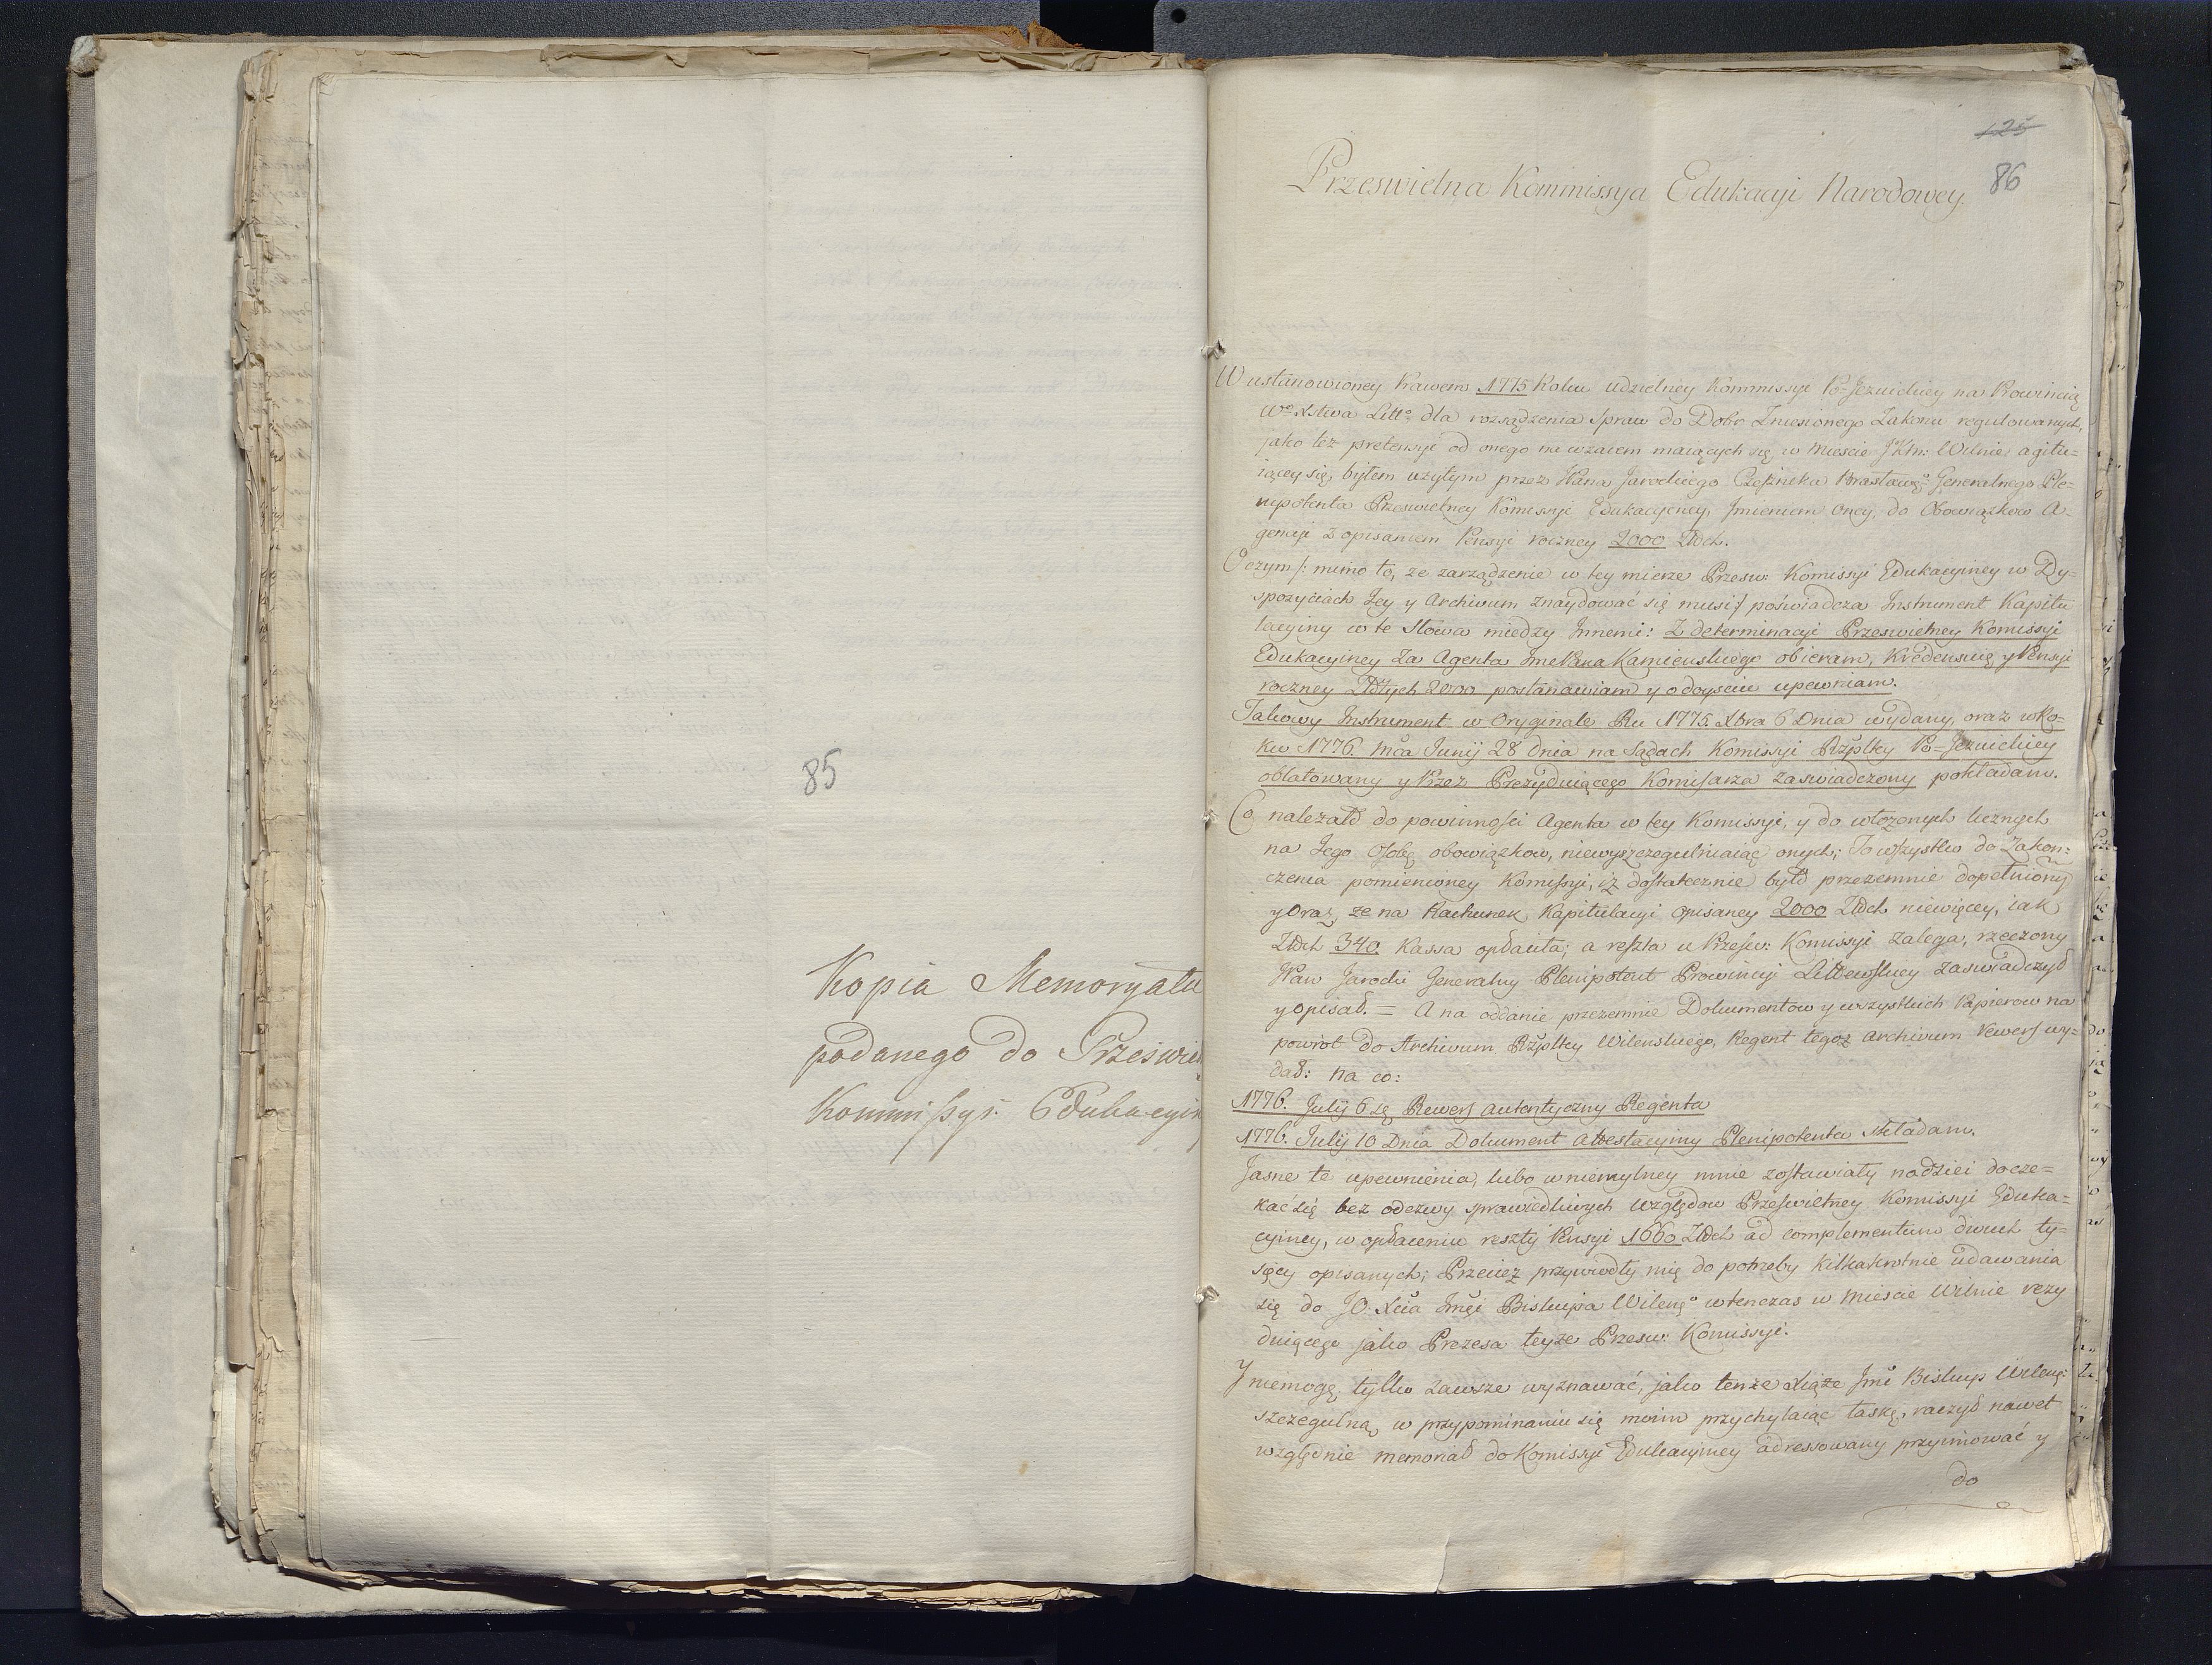 85
Kopia Memoryału
podanego do Prześwie
Kommissyi Edukacyin
125
86
Przeswietna Kommissya Edukacyi Narodowey.
W ustanowioney Prawem 1775 Roku udzielney Kommissyi Po-Jezuickiey na Prowincią
Wo Xstwa Litto dla rozsądzenia Spraw do Dobr Zniesionego Zakonu regulowanych,
jako też pretensyi od onego na wzaiem maiących się w Mieście JKM: Wilnie agitu=
iącey się, byłem użytym przez WPana Jarockiego Cześnika Brasławgo Generalnego Ple=
nipotenta Przeswietney Komissyi Edukacyiney, Jmieniem Oney, do Obowiązkow A=
gencyi z opisaniem Pensyi roczney 2000 Złłch.
O czym /: mimo to, że zarządzenie w tey mierze Przesw: Komissyi Edukacyiney w Dy=
spozyciach Jey y Archivum znaydować się musi :/ poświadcza Instrument Kapitu
lacyiny w te Słowa między Jnnemi: Z determinacyi Przeswietney Komissyi
Edukacyiney Za Agenta JmcPana Kamienskiego obieram, Kredensuię y Pensyi
roczney Złłtych 2000 postanawiam y o doyściu upewniam.
Takowy Instrument w Oryginale Ru 1775. Xbra 6 Dnia wydany, oraz w Ro=
ku 1776. Mca Junij 28 dnia na Sądach Komissyi Rzpltey Po-Jezuickiey
oblatowany y Przez Prezyduiącego Komisarza zaswiadczony pokładam.
Co należało do powinności Agenta w tey Komissyi, y do włożonych licznych
na Jego Osobę obowiązkow, niewyszczegulniaiąc onych; To wszystko do Zakon=
czenia pomienioney Komissyi, iż dostatecznie było przezemnie dopełniony
y oraz, ze na Rachunek Kapitulacyi opisaney 2000 Złłch niewięcey, iak
Złłch 340. Kassa opłaciła; a reszta u Przesw: Komissyi zalega, rzeczony
WPan Jarocki Generalny Plenipotent Prowincyi Littewskiey zaswiadczył
y opisał. = A na oddanie przezemnie Dokumentow y wszystkich Papierow na
powrót do Archivum Rzpltey Wilenskiego, Regent tegoż Archivum Rewers wy=
dał: na co:
1776. Julij 6 się Rewers autentyczny Regenta
1776. Julij 10 Dnia Dokument attestacyiny Plenipotenta składam.
Jasne te upewnienia, lubo w niemylney mnie zostawiały nadziei docze=
kać się bez odezwy sprawiedliwych względow Przeswietney Komissyi Eduka=
cyiney, w opłaceniu reszty Pensyi 1660 Złłch ad complementum dwuch ty=
sięcy opisanych; Przecież przywiodły mię do potrzeby kilkakrotnie udawania
się do JO. Xcia Jmci Biskupa Wilengo wtenczas w Mieście Wilnie rezy
duiącego jako Prezesa teyże Przesw: Komissyi.
Y niemogę tylko zawsze wyznawać, jako tenże Xiąże Jmć Biskup Wileng:
szczegulną w przypominaniu się moim przychylaiąc łaskę, raczył nawet
względnie memoriał do Komissyi Edukacyiney adressowany przyimować y
do